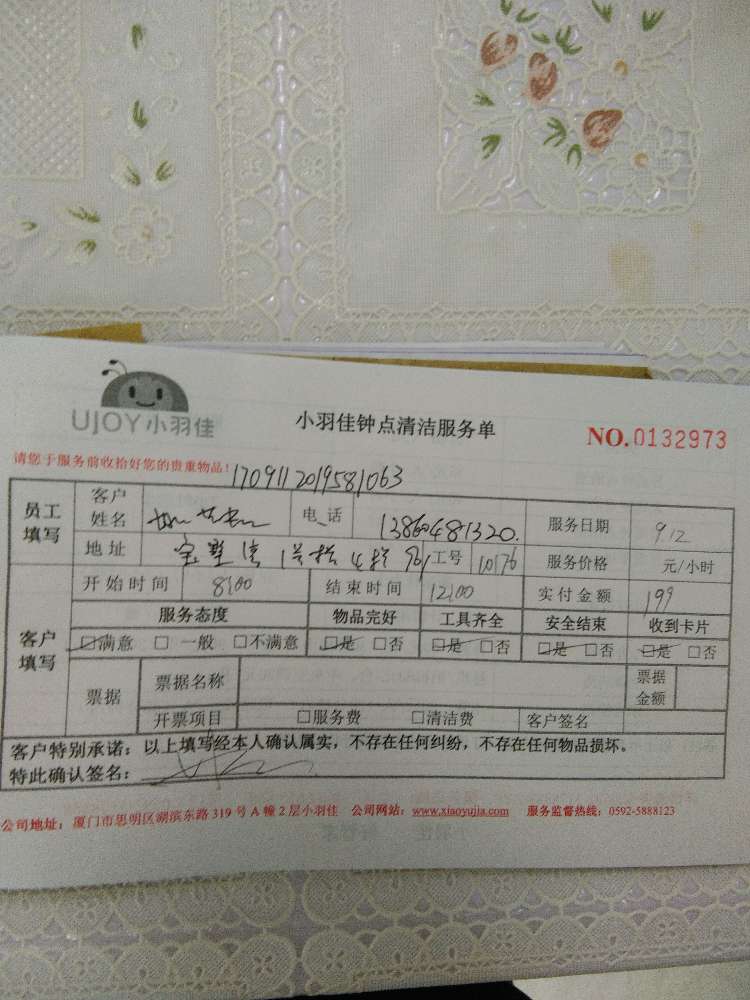 UJOY小羽佳
小羽佳钟点清洁服务单
NO.0132973
请您于服务前收拾好您的贵重物品!
1709112019581063
员工填写 客户姓名 电话 13860481320. 服务日期 9.12
地址 工号 10176 服务价格 元/小时
客户填写 开始时间 8:00 结束时间 12:00 实付金额 199
服务态度 物品完好 工具齐全 安全结束 收到卡片
□满意 □一般 □不满意 □是 □否 □是 □否 □是 □否 □是 □否
票据 票据名称 票据金额
开票项目 □服务费 □清洁费 客户签名
客户特别承诺:以上填写经本人确认属实,不存在任何纠纷,不存在任何物品损坏。
特此确认签名:
公司地址:厦门市思明区湖滨东路319号A幢2层小羽佳 公司网站:www.xiaoyujia.com 服务监督热线:0592-5888123